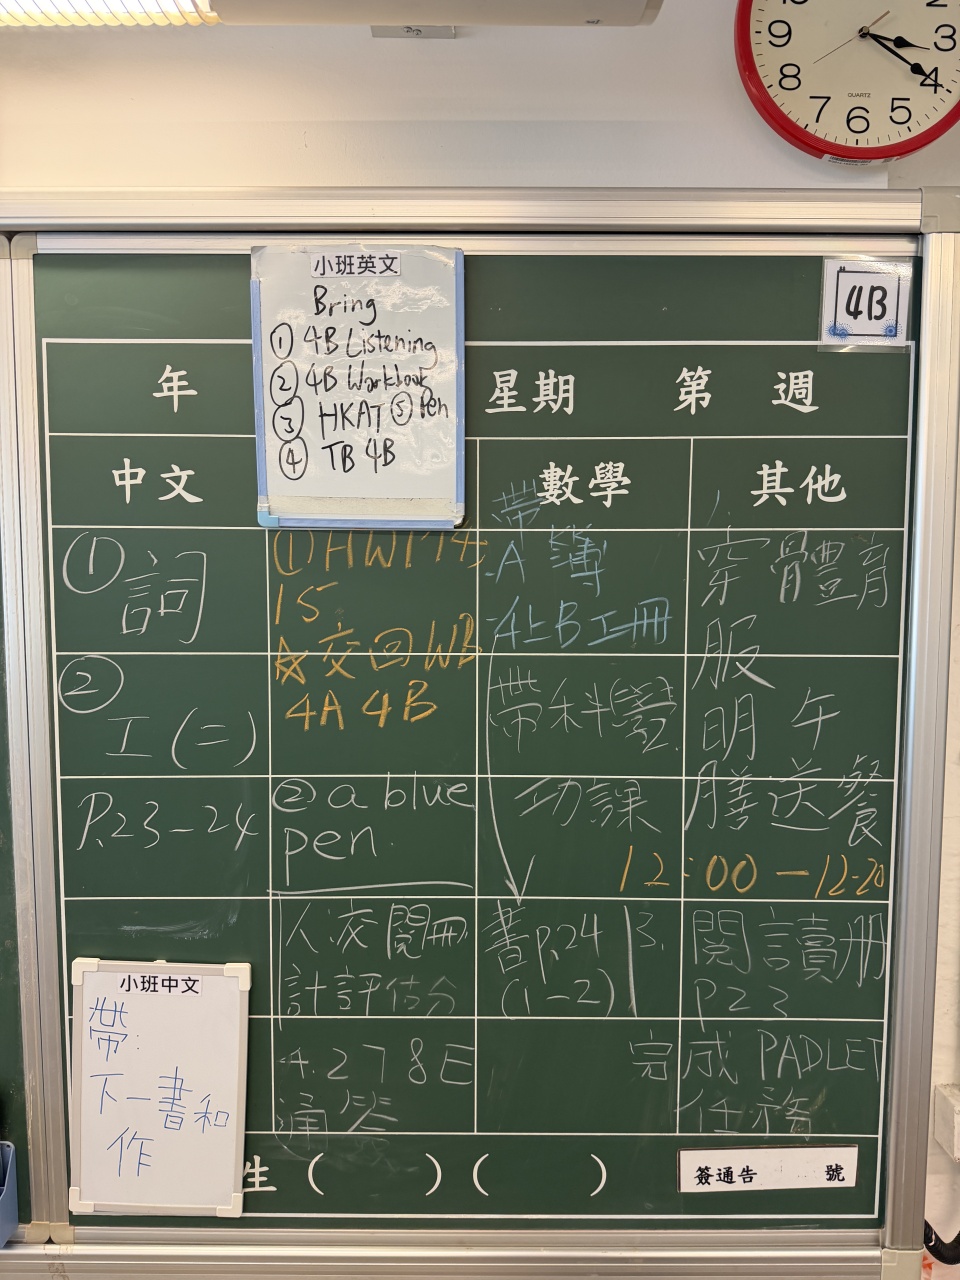 9
8
7
6
5
4
3
2
QUARTZ
小班英文
Bring
① 4B Listening
② 4B Workbook
③ HKAT ⑤ Pen
④ TB 4B
4B
年 星期 第 週
中文 數學 其他
① 詞
② 工(二)
P.23-24
① HW
15
☆交回WB
4A 4B
② a blue
pen.
帶
A 簿
4上B工冊
帶科學
功課
書P.24
(1-2)
穿體育
服
明 午
膳送餐
12:00-12:20
3. 閱讀册
P23
完成 PADLET
任務
小班中文
帶:
下一書和
作
生( )( )
簽通告 號